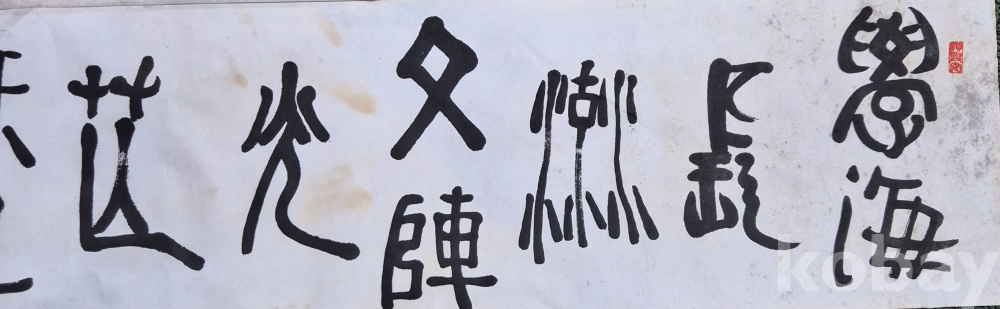 學海
長
流
文陣
光
芒
kobay